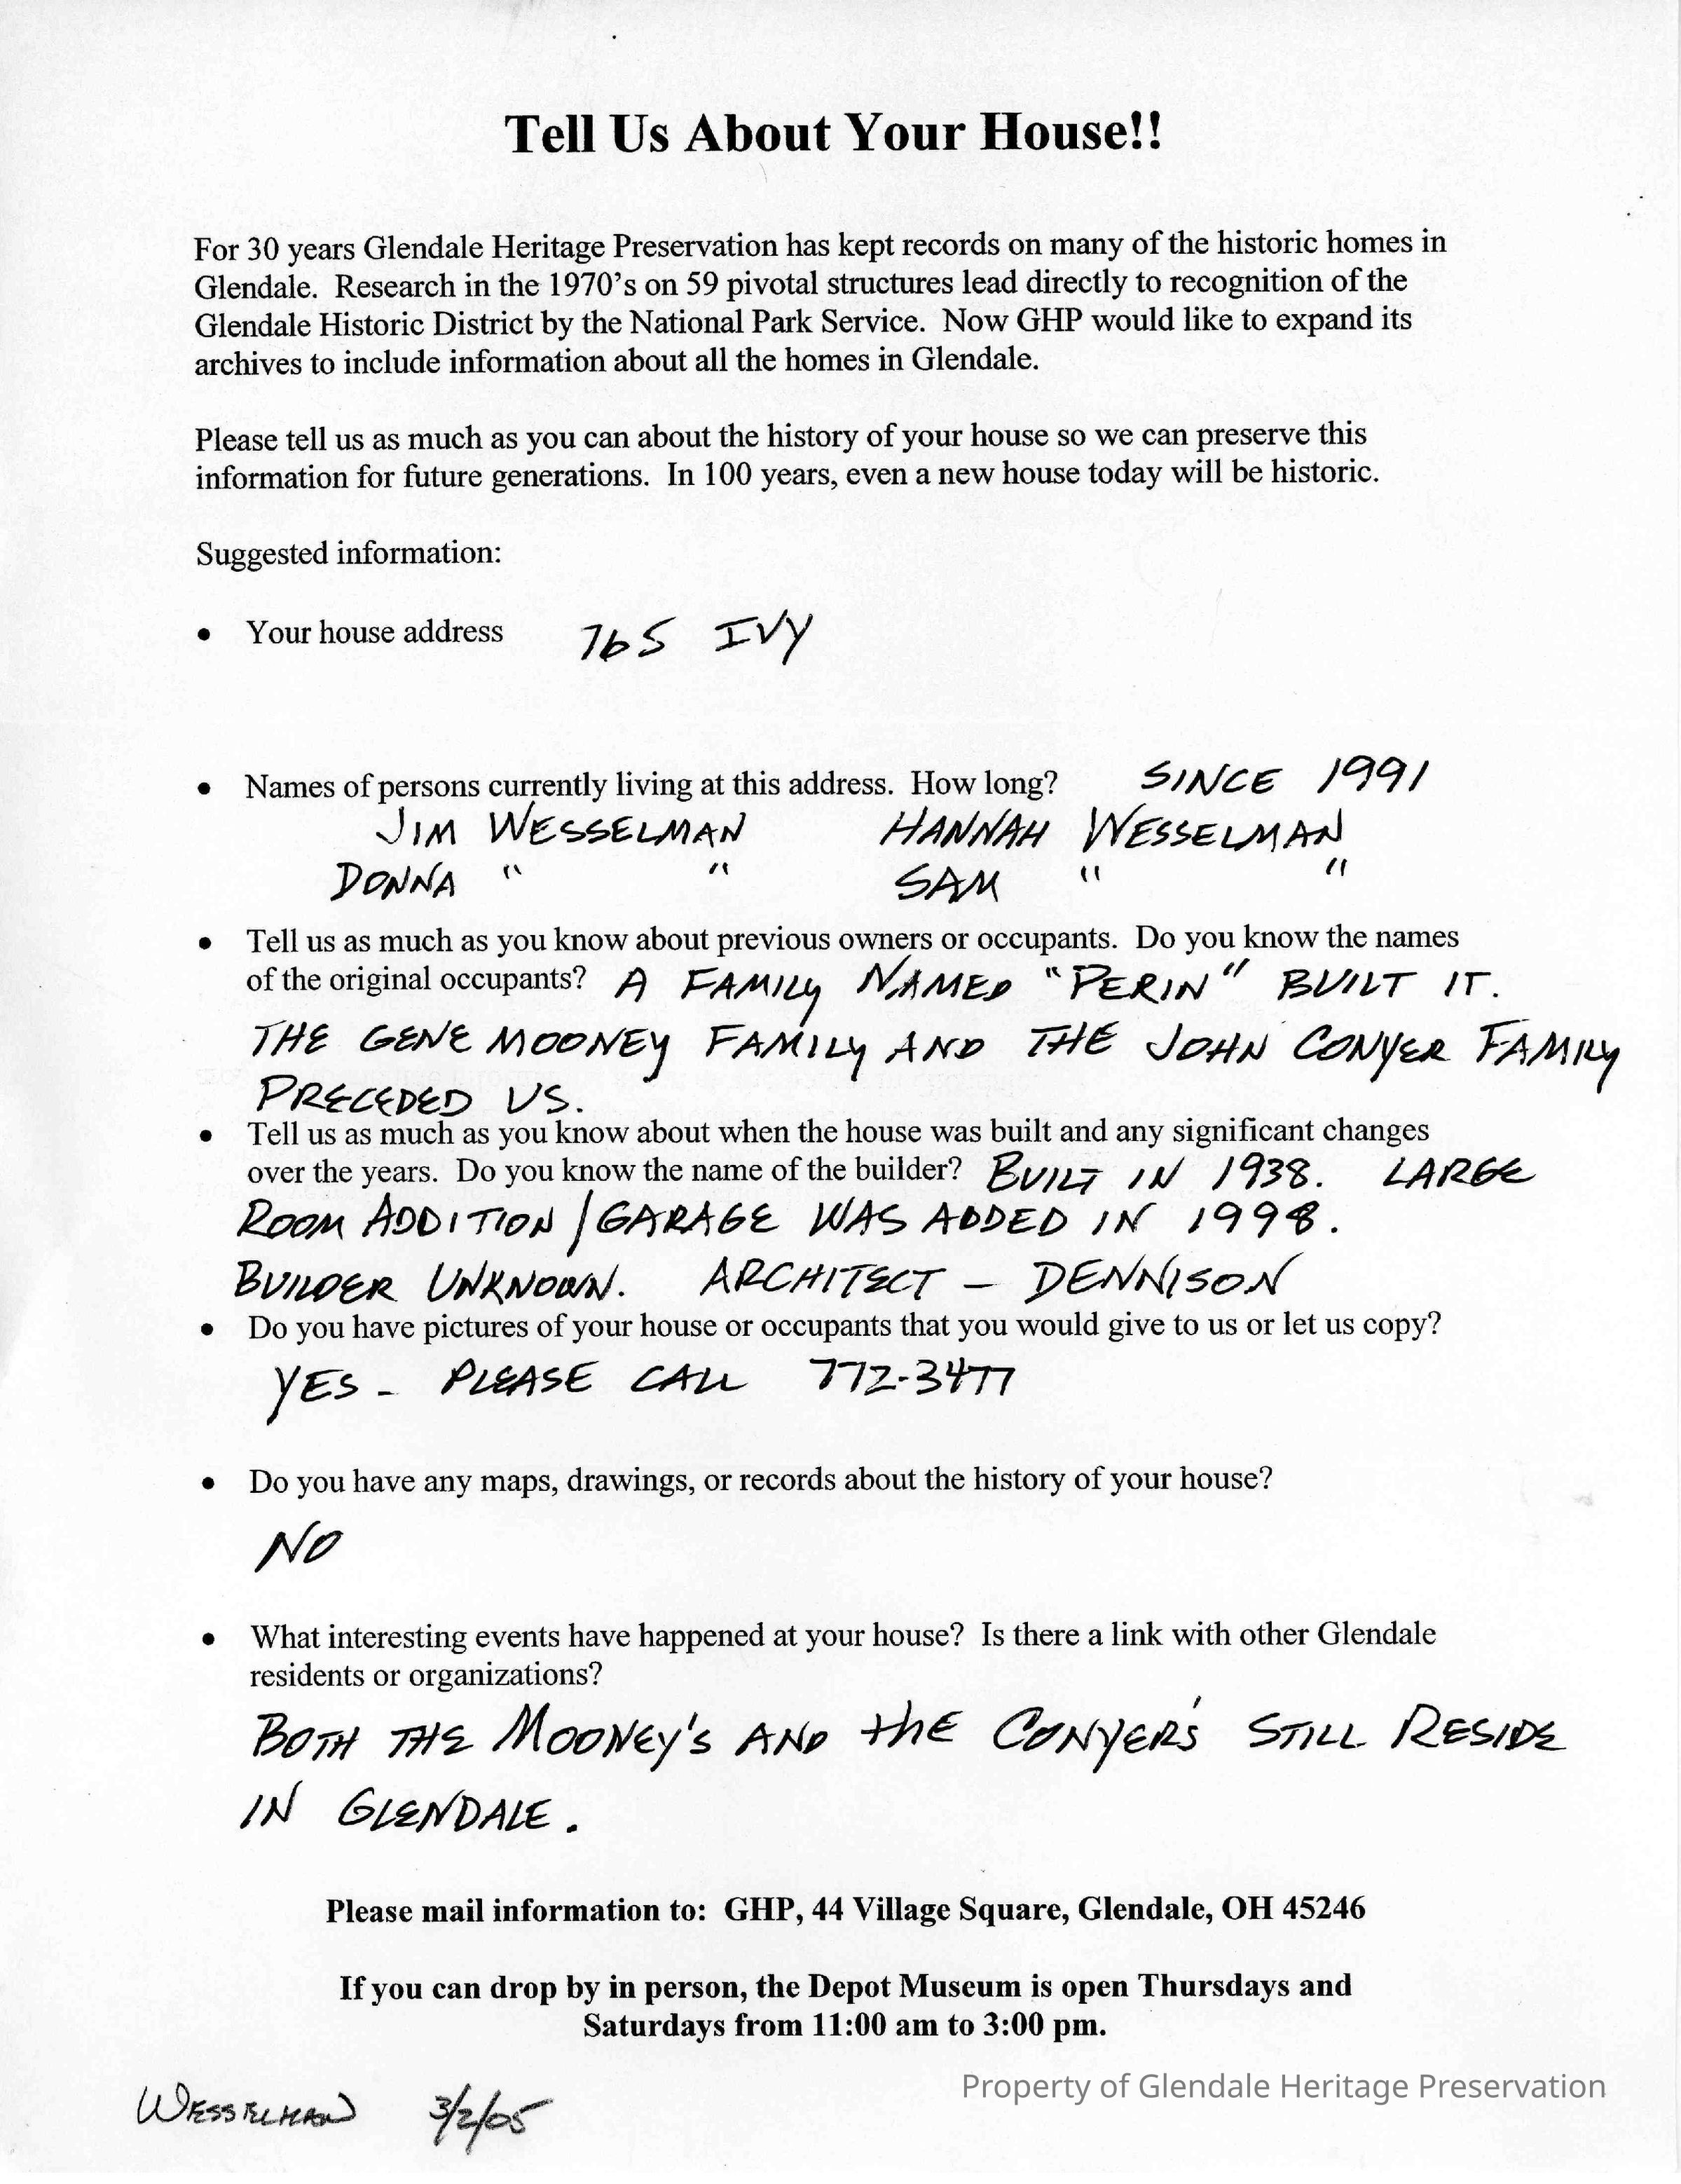 Tell Us About Your House!!
For 30 years Glendale Heritage Preservation has kept records on many of the historic homes in
Glendale. Research in the 1970's on 59 pivotal structures lead directly to recognition of the
Glendale Historic District by the National Park Service. Now GHP would like to expand its
archives to include information about all the homes in Glendale.
Please tell us as much as you can about the history of your house so we can preserve this
information for future generations. In 100 years, even a new house today will be historic.
Suggested information:
• Your house address 765 IVY
• Names of persons currently living at this address. How long? SINCE 1991
JIM WESSELMAN HANNAH WESSELMAN
DONNA " " SAM " "
• Tell us as much as you know about previous owners or occupants. Do you know the names
of the original occupants? A FAMILY NAMED "PERIN" BUILT IT.
THE GENE MOONEY FAMILY AND THE JOHN CONYER FAMILY
PRECEDED US.
• Tell us as much as you know about when the house was built and any significant changes
over the years. Do you know the name of the builder? BUILT IN 1938. LARGE
ROOM ADDITION / GARAGE WAS ADDED IN 1998.
BUILDER UNKNOWN. ARCHITECT - DENNISON
• Do you have pictures of your house or occupants that you would give to us or let us copy?
YES - PLEASE CALL 772-3477
• Do you have any maps, drawings, or records about the history of your house?
NO
• What interesting events have happened at your house? Is there a link with other Glendale
residents or organizations?
BOTH THE MOONEY'S AND THE CONYER'S STILL RESIDE
IN GLENDALE.
Please mail information to: GHP, 44 Village Square, Glendale, OH 45246
If you can drop by in person, the Depot Museum is open Thursdays and
Saturdays from 11:00 am to 3:00 pm.
Property of Glendale Heritage Preservation
WESSELMAN 3/2/05